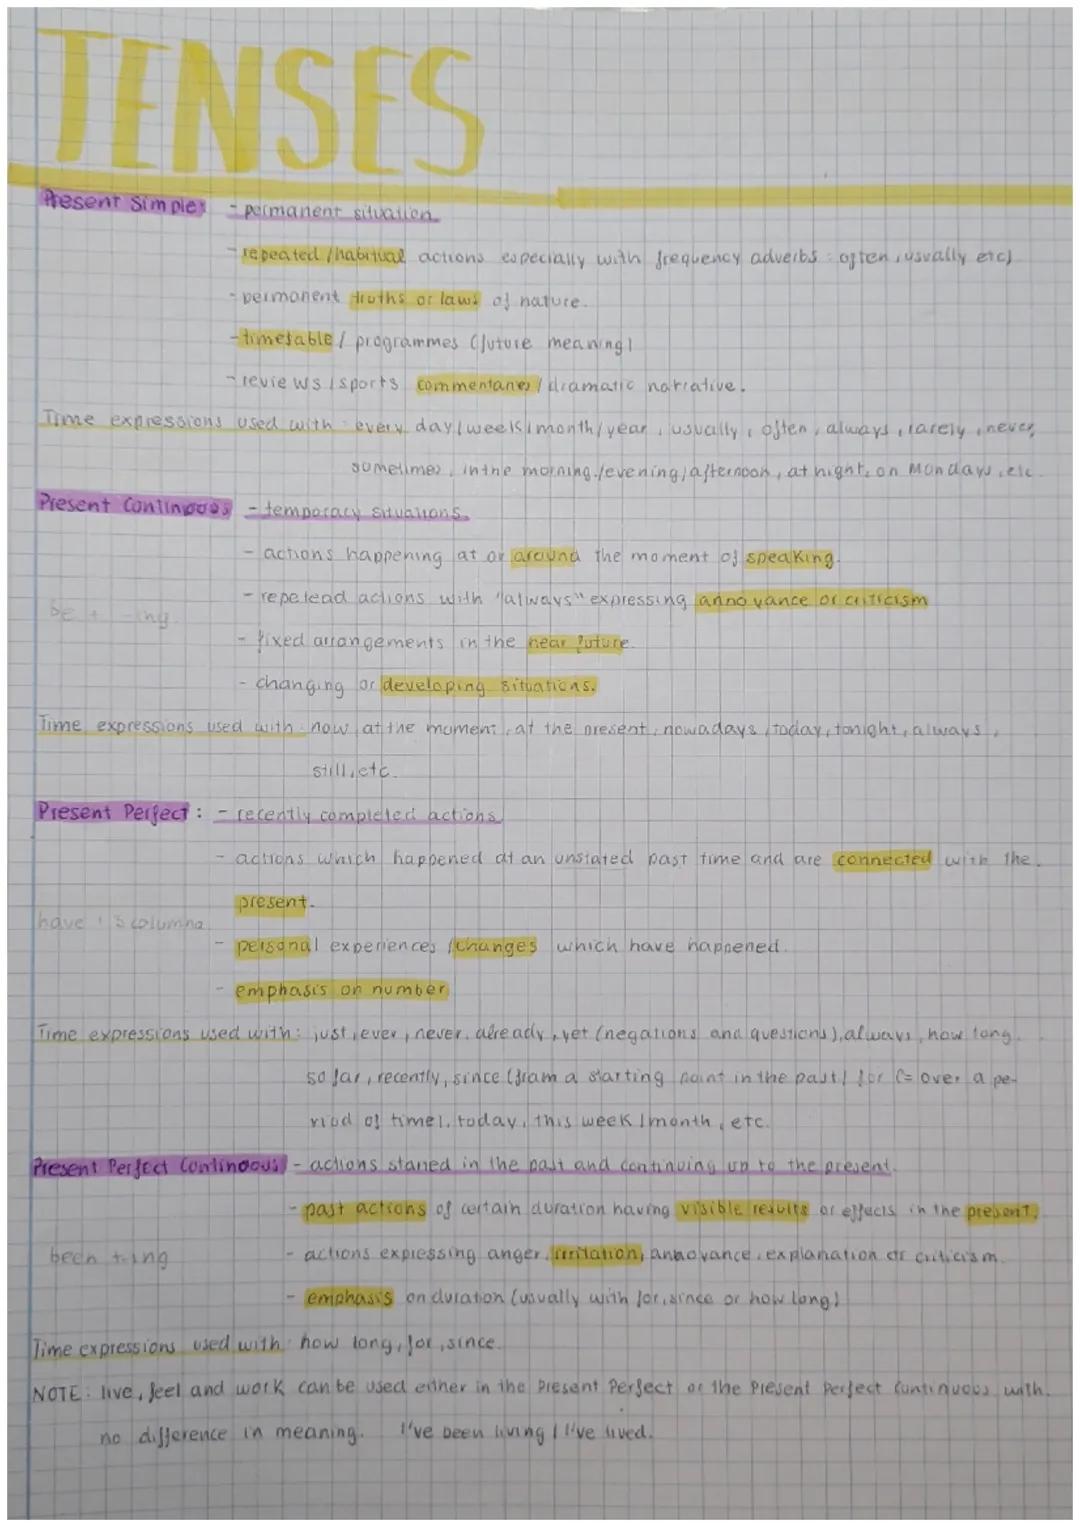 TENSES
Present Simple: - permanent situation
- repeated / habitual actions especially with frequency adverbs: often, usually etc)
- permanent truths or laws of nature.
- timetable / programmes (future meaning)
- reviews / sports commentaries / dramatic narrative.
Time expressions used with: every day/week/month/year, usually, often, always, rarely, never,
sometimes, in the morning/evening/afternoon, at night, on Mondays, etc.
Present Continuous - temporary situations
- actions happening at or around the moment of speaking.
- repetead actions with "always" expressing annoyance or criticism
be + -ing
- fixed arrangements in the near future.
- changing or developing situations.
Time expressions used with: now, at the moment, at the present, nowadays, today, tonight, always,
still, etc.
Present Perfect: - recently completed actions
- actions which happened at an unstated past time and are connected with the
present.
have + 3 columna
- personal experiences / changes which have happened.
- emphasis on number
Time expressions used with: just, ever, never, already, yet (negations and questions), always, how long,
so far, recently, since (from a starting point in the past) for (= over a pe-
riod of time), today, this week / month, etc.
Present Perfect Continuous - actions started in the past and continuing up to the present.
- past actions of certain duration having visible results or effects in the present.
been + -ing
- actions expressing anger, irritation, annoyance, explanation or criticism.
- emphasis on duration (usually with for, since or how long)
Time expressions used with: how long, for, since.
NOTE: live, feel and work can be used either in the Present Perfect or the Present Perfect Continuous with
no difference in meaning. I've been living / I've lived.